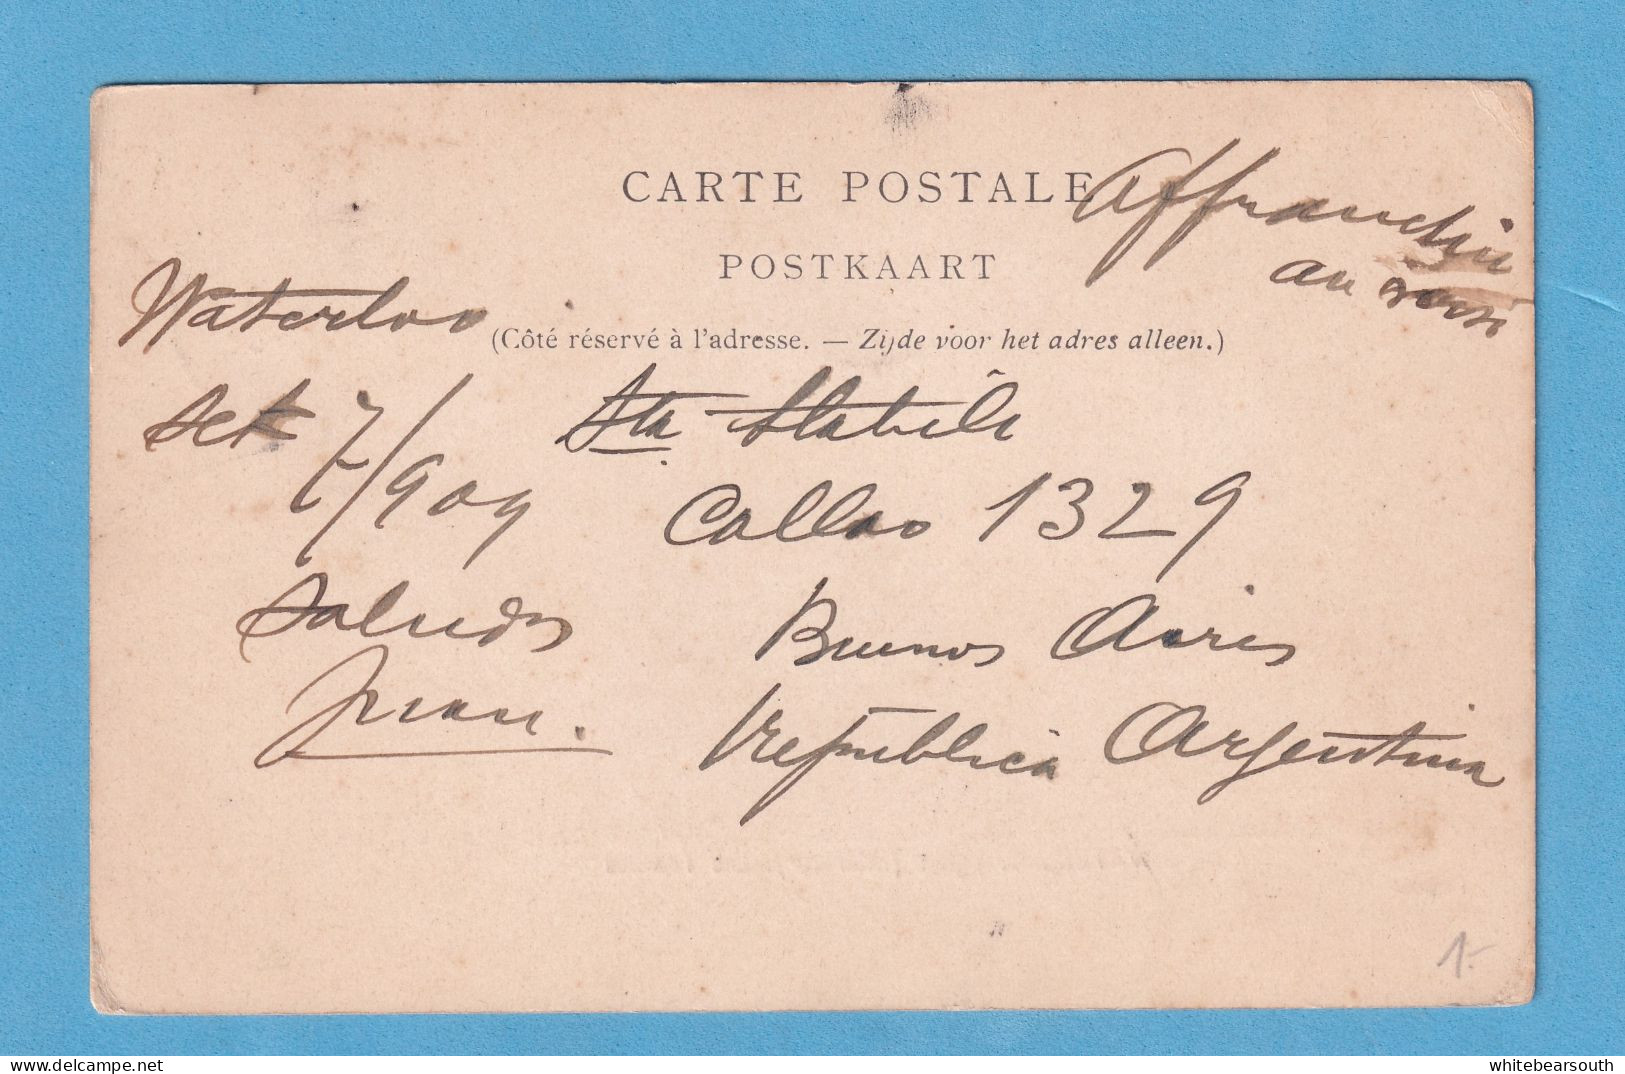 CARTE POSTALE
POSTKAART
(Côté réservé à l'adresse. — Zijde voor het adres alleen.)
Affranchie
au
Waterloo
Set 7/909
Saludos
Juan.
Sta Stabile
Callao 1329
Buenos Aires
Republica Argentina
1-
delcampe.net
whitebearsouth